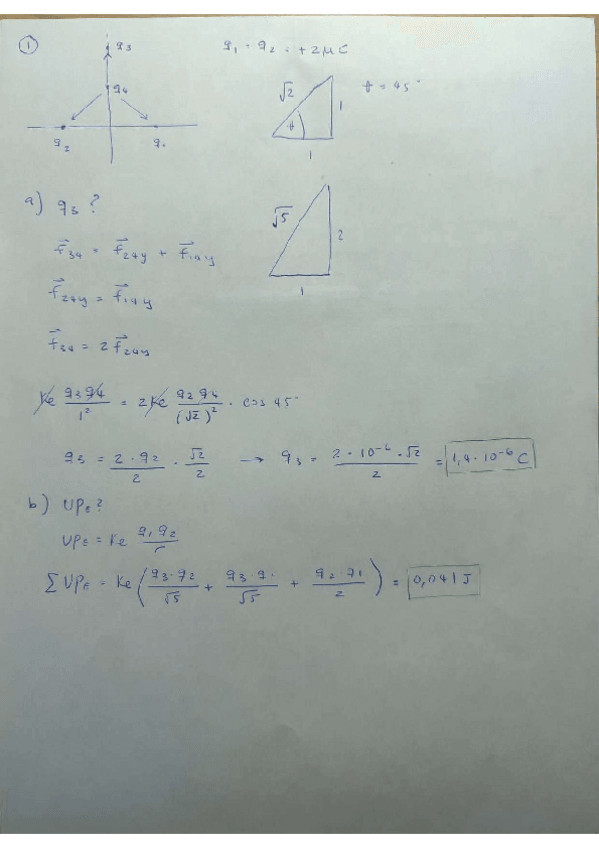 ①
q3
q4
q2 q1
q1 = q2 = +2μC
√2 1 θ 1
θ = 45°
√5 2 1
a) q3?
f34 = f24y + f14y
f24y = f14y
f34 = 2 f24y
Ke q3q4/1² = 2Ke q2q4/(√2)² · cos 45°
q3 = 2·q2/2 · √2/2 → q3 = 2·10⁻⁶·√2/2 = 1,4·10⁻⁶ C
b) UPE?
UPE = Ke q1q2/r
∑ UPE = Ke (q3·q2/√5 + q3·q1/√5 + q2·q1/2) = 0,041 J